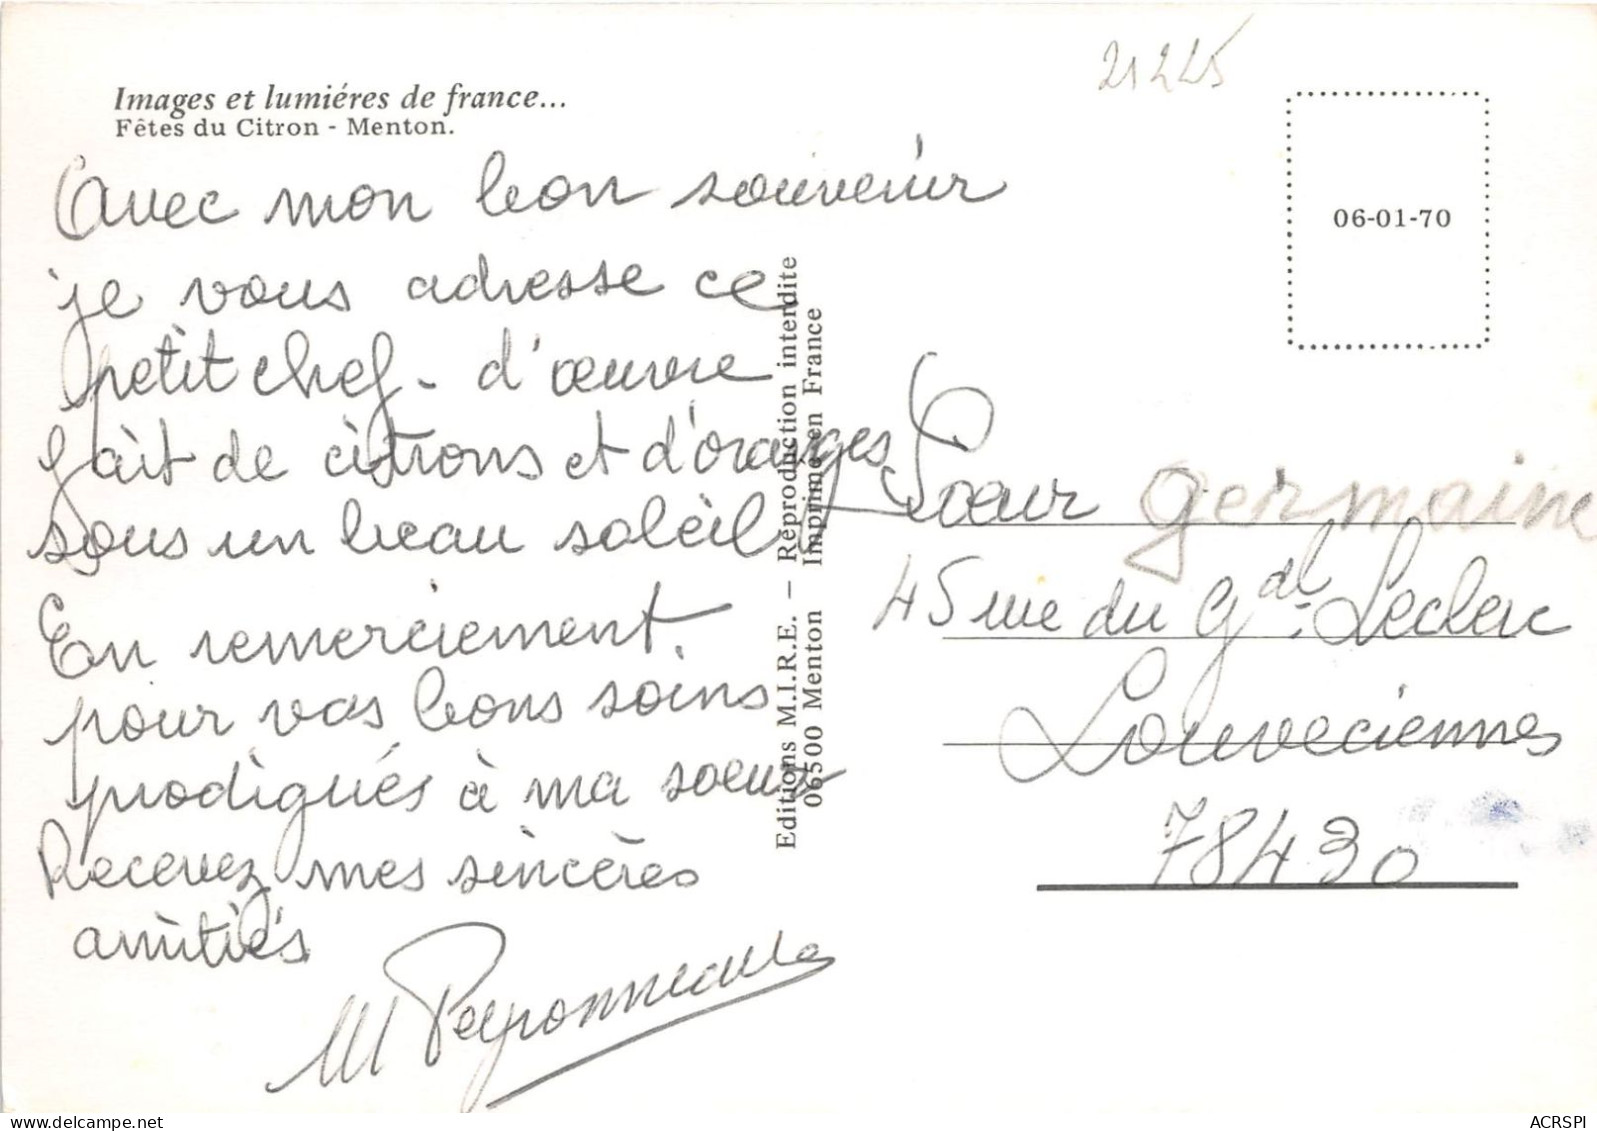 21225
Images et lumiéres de france...
Fêtes du Citron - Menton.
06-01-70
Avec mon bon souvenir
je vous adresse ce
petit chef-d'œuvre
fait de citrons et d'oranges
sous un beau soleil
En remerciement.
pour vos bons soins
prodigués à ma soeur
Recevez mes sincères
amitiés
M Peyronneaula
Editions M.I.R.E. — Reproduction interdite
06500 Menton Imprimé en France
Soeur germaine
45 rue du Gdl. Leclerc
Louveciennes
78430
ACRSPI